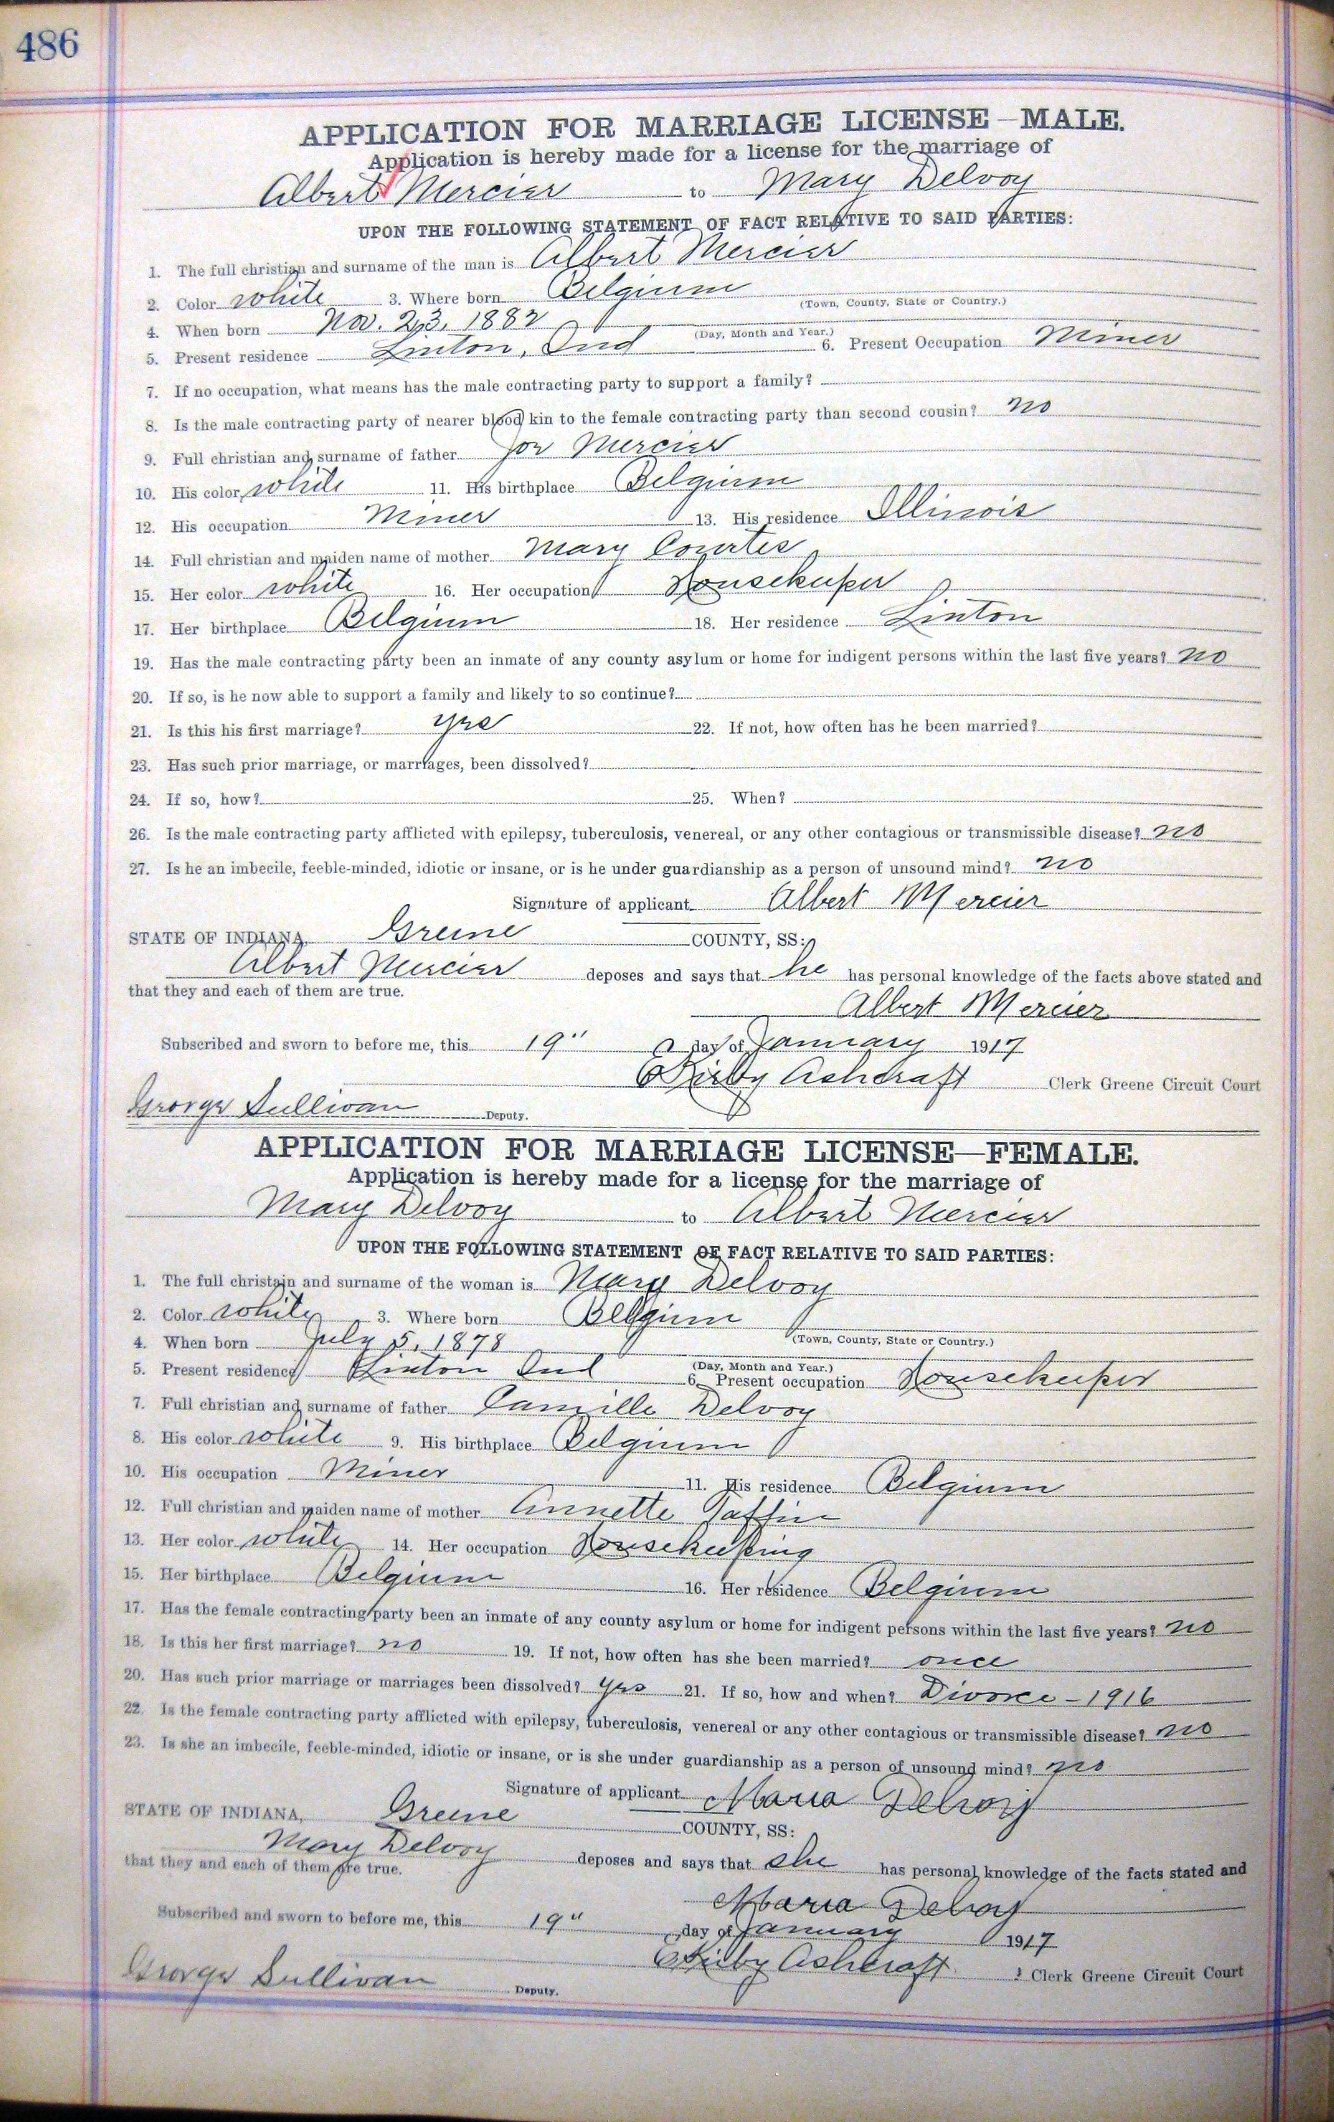 486
APPLICATION FOR MARRIAGE LICENSE—MALE.
Application is hereby made for a license for the marriage of
Albert Mercier to Mary Delvoy
UPON THE FOLLOWING STATEMENT OF FACT RELATIVE TO SAID PARTIES:
1. The full christian and surname of the man is Albert Mercier
2. Color white 3. Where born Belgium (Town, County, State or Country.)
4. When born Nov. 23, 1882 (Day, Month and Year.)
5. Present residence Linton, Ind 6. Present Occupation Miner
7. If no occupation, what means has the male contracting party to support a family?
8. Is the male contracting party of nearer blood kin to the female contracting party than second cousin? no
9. Full christian and surname of father Joe Mercier
10. His color white 11. His birthplace Belgium
12. His occupation Miner 13. His residence Illinois
14. Full christian and maiden name of mother Mary Courtes
15. Her color white 16. Her occupation Housekeeper
17. Her birthplace Belgium 18. Her residence Linton
19. Has the male contracting party been an inmate of any county asylum or home for indigent persons within the last five years? no
20. If so, is he now able to support a family and likely to so continue?
21. Is this his first marriage? yes 22. If not, how often has he been married?
23. Has such prior marriage, or marriages, been dissolved?
24. If so, how? 25. When?
26. Is the male contracting party afflicted with epilepsy, tuberculosis, venereal, or any other contagious or transmissible disease? no
27. Is he an imbecile, feeble-minded, idiotic or insane, or is he under guardianship as a person of unsound mind? no
Signature of applicant Albert Mercier
STATE OF INDIANA, Greene COUNTY, SS:
Albert Mercier deposes and says that he has personal knowledge of the facts above stated and
that they and each of them are true.
Albert Mercier
Subscribed and sworn to before me, this 19" day of January 1917
E Kirby Ashcraft Clerk Greene Circuit Court
George Sullivan Deputy.
APPLICATION FOR MARRIAGE LICENSE—FEMALE.
Application is hereby made for a license for the marriage of
Mary Delvoy to Albert Mercier
UPON THE FOLLOWING STATEMENT OF FACT RELATIVE TO SAID PARTIES:
1. The full christain and surname of the woman is Mary Delvoy
2. Color white 3. Where born Belgium (Town, County, State or Country.)
4. When born July 5, 1878 (Day, Month and Year.)
5. Present residence Linton Ind 6. Present occupation Housekeeper
7. Full christian and surname of father Camille Delvoy
8. His color white 9. His birthplace Belgium
10. His occupation Miner 11. His residence Belgium
12. Full christian and maiden name of mother Annette Taffin
13. Her color white 14. Her occupation Housekeeping
15. Her birthplace Belgium 16. Her residence Belgium
17. Has the female contracting party been an inmate of any county asylum or home for indigent persons within the last five years? no
18. Is this her first marriage? no 19. If not, how often has she been married? once
20. Has such prior marriage or marriages been dissolved? yes 21. If so, how and when? Divorce - 1916
22. Is the female contracting party afflicted with epilepsy, tuberculosis, venereal or any other contagious or transmissible disease? no
23. Is she an imbecile, feeble-minded, idiotic or insane, or is she under guardianship as a person of unsound mind? no
Signature of applicant Maria Delvoy
STATE OF INDIANA, Greene COUNTY, SS:
Mary Delvoy deposes and says that she has personal knowledge of the facts stated and
that they and each of them are true.
Maria Delvoy
Subscribed and sworn to before me, this 19" day of January 1917
E Kirby Ashcraft Clerk Greene Circuit Court
George Sullivan Deputy.